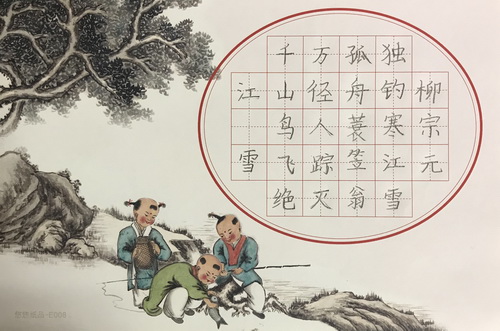 江雪
千山鸟飞绝
万径人踪灭
孤舟蓑笠翁
独钓寒江雪
柳宗元